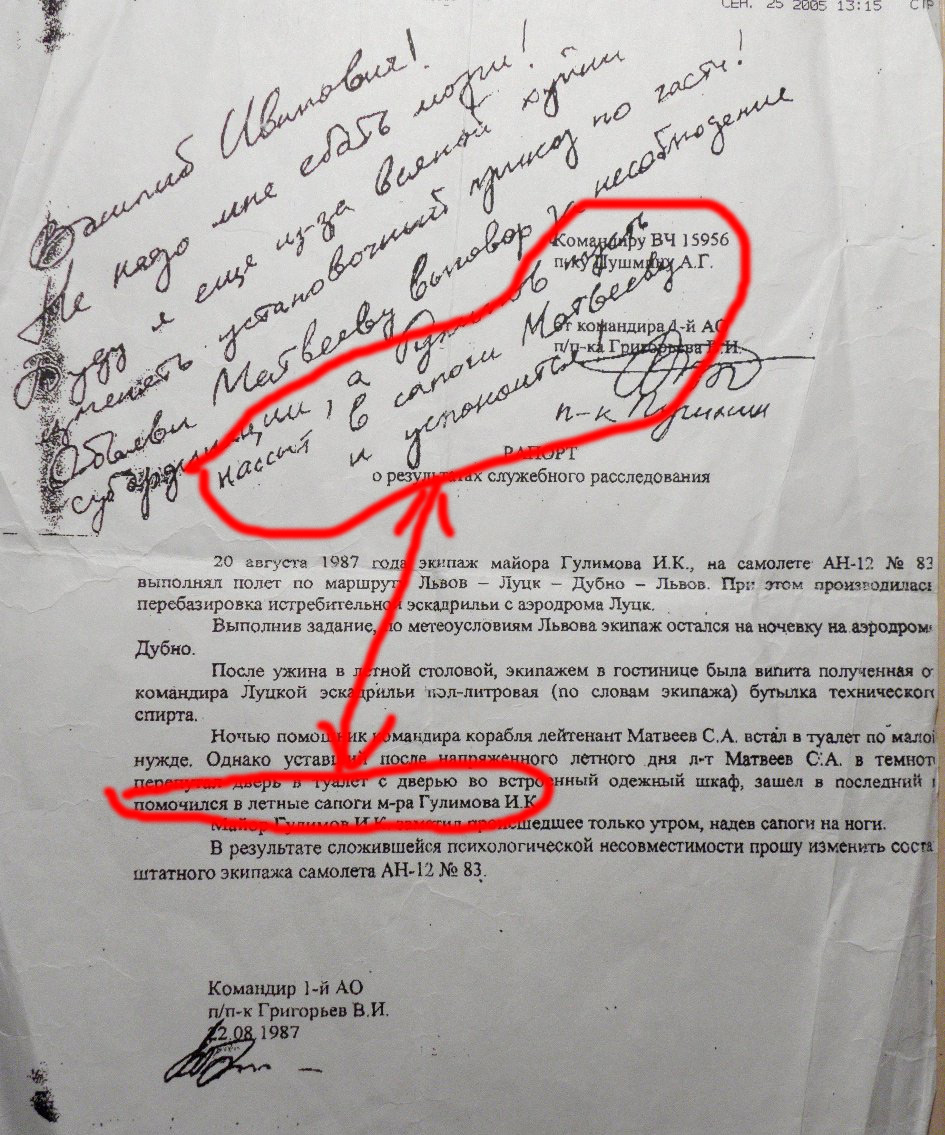 СЕН. 25 2005 13:15 СТР
Василий Иванович!
Не надо мне ебать мозги!
Буду я ещё из-за всякой хуйни
изменять установочный приказ по части!
Объяви Матвееву выговор за несоблюдение
субординации, а Гулимов пусть
нассыт в сапоги Матвееву
и успокоится!
п-к Пушкин
Командиру ВЧ 15956
п-ку Пушкину А.Г.
от командира 1-й АО
п/п-ка Григорьева В.И.
РАПОРТ
о результатах служебного расследования
20 августа 1987 года, экипаж майора Гулимова И.К., на самолете АН-12 № 83
выполнял полет по маршруту Львов – Луцк – Дубно – Львов. При этом производилась
перебазировка истребительной эскадрильи с аэродрома Луцк.
Выполнив задание, по метеоусловиям Львова экипаж остался на ночевку на аэродром
Дубно.
После ужина в летной столовой, экипажем в гостинице была випита полученная о
командира Луцкой эскадрильи пол-литровая (по словам экипажа) бутылка технического
спирта.
Ночью помощник командира корабля лейтенант Матвеев С.А. встал в туалет по мало
нужде. Однако уставший после напряженного летного дня л-т Матвеев С.А. в темнот
перепутал дверь в туалет с дверью во встроенный одежный шкаф, зашел в последний и
помочился в летные сапоги м-ра Гулимова И.К
Майор Гулимов И.К. заметил происшедшее только утром, надев сапоги на ноги.
В результате сложившейся психологической несовместимости прошу изменить соста
штатного экипажа самолета АН-12 № 83.
Командир 1-й АО
п/п-к Григорьев В.И.
22.08.1987